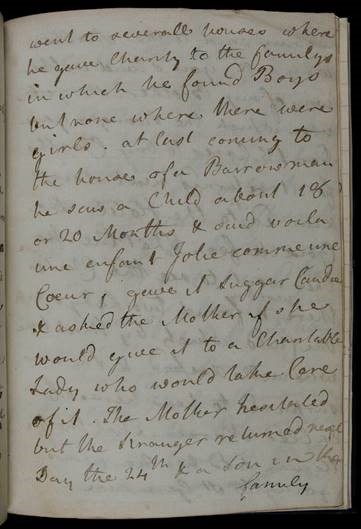 went to severall houses where
he gave Charity to the familys
in which he found Boys
but none where there were
girls. at last coming to
the house of a Barrowman
he saw a Child about 18
or 20 Months & said voila
une enfant Jolie comme une
Coeur, gave it Suggar Candie
& asked the Mother if she
would give it to a Charitable
Lady who would take Care
of it. The Mother hesitated
but the Stranger returned next
Day the 24th & a Son in the
family